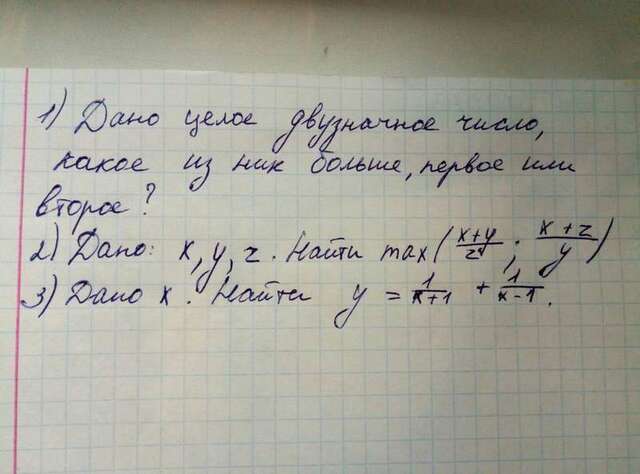 1) Дано целое двузначное число,
какое из них больше, первое или
второе?
2) Дано: x, y, z. Найти max(\frac{x+y}{z}; \frac{x+z}{y})
3) Дано x. Найти y = \frac{1}{x+1} + \frac{1}{x-1}.